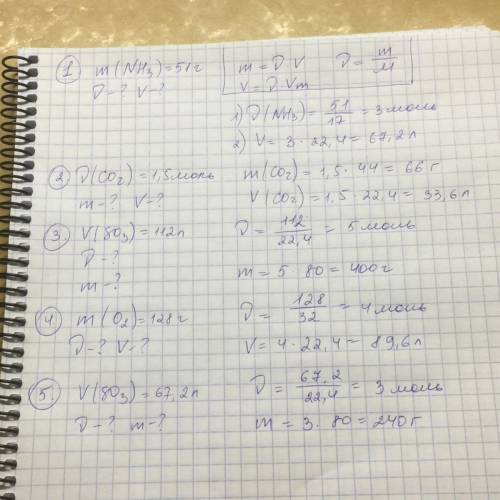 ① m(NH₃)=51г
D-? V-?
m = D·V D = m/M
V = D·Vm
1) D(NH₃) = 51/17 = 3 моль
2) V = 3·22,4 = 67,2 л
② D(CO₂) = 1,5 моль
m-? V-?
m(CO₂) = 1,5·44 = 66 г
V(CO₂) = 1,5·22,4 = 33,6 л
③ V(SO₃) = 112 л
D-?
m-?
D = 112/22,4 = 5 моль
m = 5·80 = 400 г
④ m(O₂) = 128 г
D-? V-?
D = 128/32 = 4 моль
V = 4·22,4 = 89,6 л
⑤ V(SO₃) = 67,2 л
D-? m-?
D = 67,2/22,4 = 3 моль
m = 3·80 = 240 г